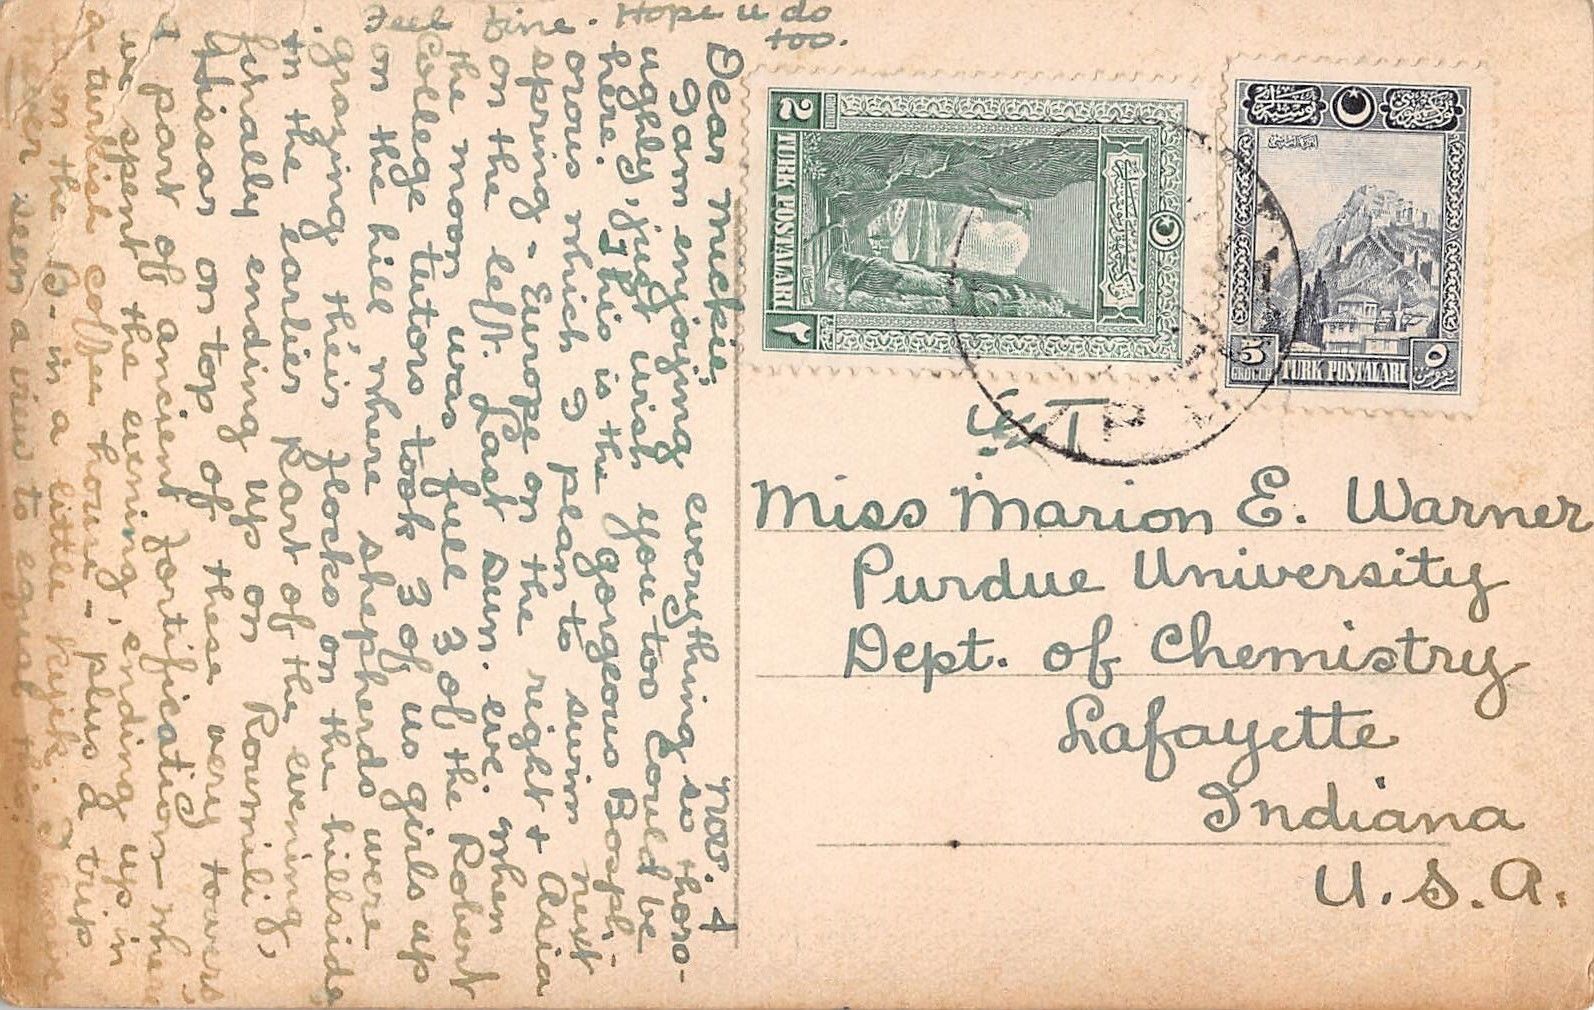 Feel fine. Hope u do
too.
Nov. 4
Dear Mickie;
I am enjoying everything so thoro-
ughly, just wish you too could be
here. This is the gorgeous Bosph-
orous which I plan to swim next
spring - Europe on the right & Asia
on the left. Last sun. eve. when
the moon was full 3 of the Robert
College tutors took 3 of us girls up
on the hill where shepherds were
grazing their flocks on the hillside
in the earlier part of the evening,
finally ending up on Roumili
Hissar on top of these very towers
a part of ancient fortification where
we spent the evening, ending up in
a turkish coffee house - plus a trip
on the B- in a little kyik. I have
never seen a view to equal this
2
GROUCH
TURK POSTALARI
٢
5
GROUCH
TURK POSTALARI
٥
غروش
Miss Marion E. Warner
Purdue University
Dept. of Chemistry
Lafayette
Indiana
U. S. A.